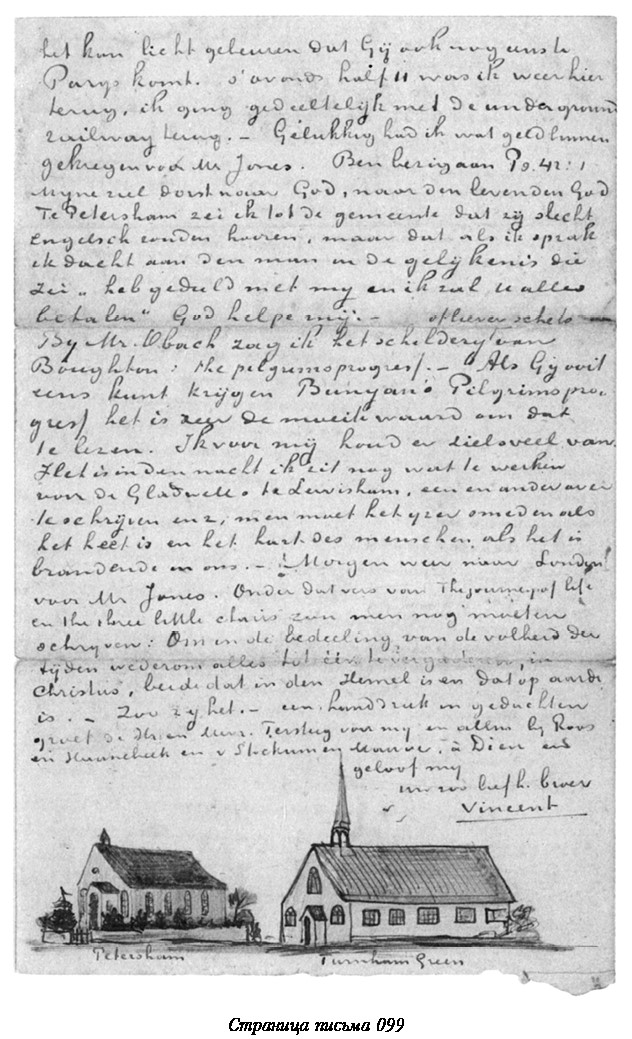 het kan licht gebeuren dat Gij ook nog eens te
Parys komt. s'avonds half 11 was ik weer hier
terug, ik ging gedeeltelijk met de underground
railway terug. — Gelukkig had ik wat geld binnen
gekregen voor Mr Jones. Ben bezig aan Ps. 42:1
Myne ziel dorst naar God, naar den levenden God
Te Petersham zei ik tot de gemeente dat zij slecht
Engelsch zouden hooren, maar dat als ik sprak
ik dacht aan den man in de gelijkenis die
zei „heb geduld met my en ik zal u alles
betalen" God helpe mij. —
By Mr. Obach zag ik het schildery van
Boughton: the pilgrimsprogress. — Als Gy ooit
eens kunt krijgen Bunyan's Pilgrimspro-
gress het is zeer de moeite waard om dat
te lezen. Ik voor mij houd er zielsveel van.
Het is in den nacht ik zit nog wat te werken
voor de Gladwells te Lewisham, een en ander over
te schrijven enz, men moet het yzer smeden als
het heet is en het hart des menschen als het is
brandende in ons. — Morgen weer naar London
voor Mr Jones. Onder dat vers van The journey of life
en the three little chairs zou men nog moeten
schryven: Om in de bedeeling van de volheid der
tijden wederom alles tot één te vergaderen, in
Christus, beide dat in den Hemel is en dat op aarde
is. — Zoo zy het. — een handdruk in gedachten
groet de Hr en Mevr. Tersteeg voor my en allen by Roos
en Haanebeek en v Stockum en Mauve, à Dieu en
geloof my
uw zoo liefh. broer
Vincent
Petersham
Turnham Green
Страница письма 099